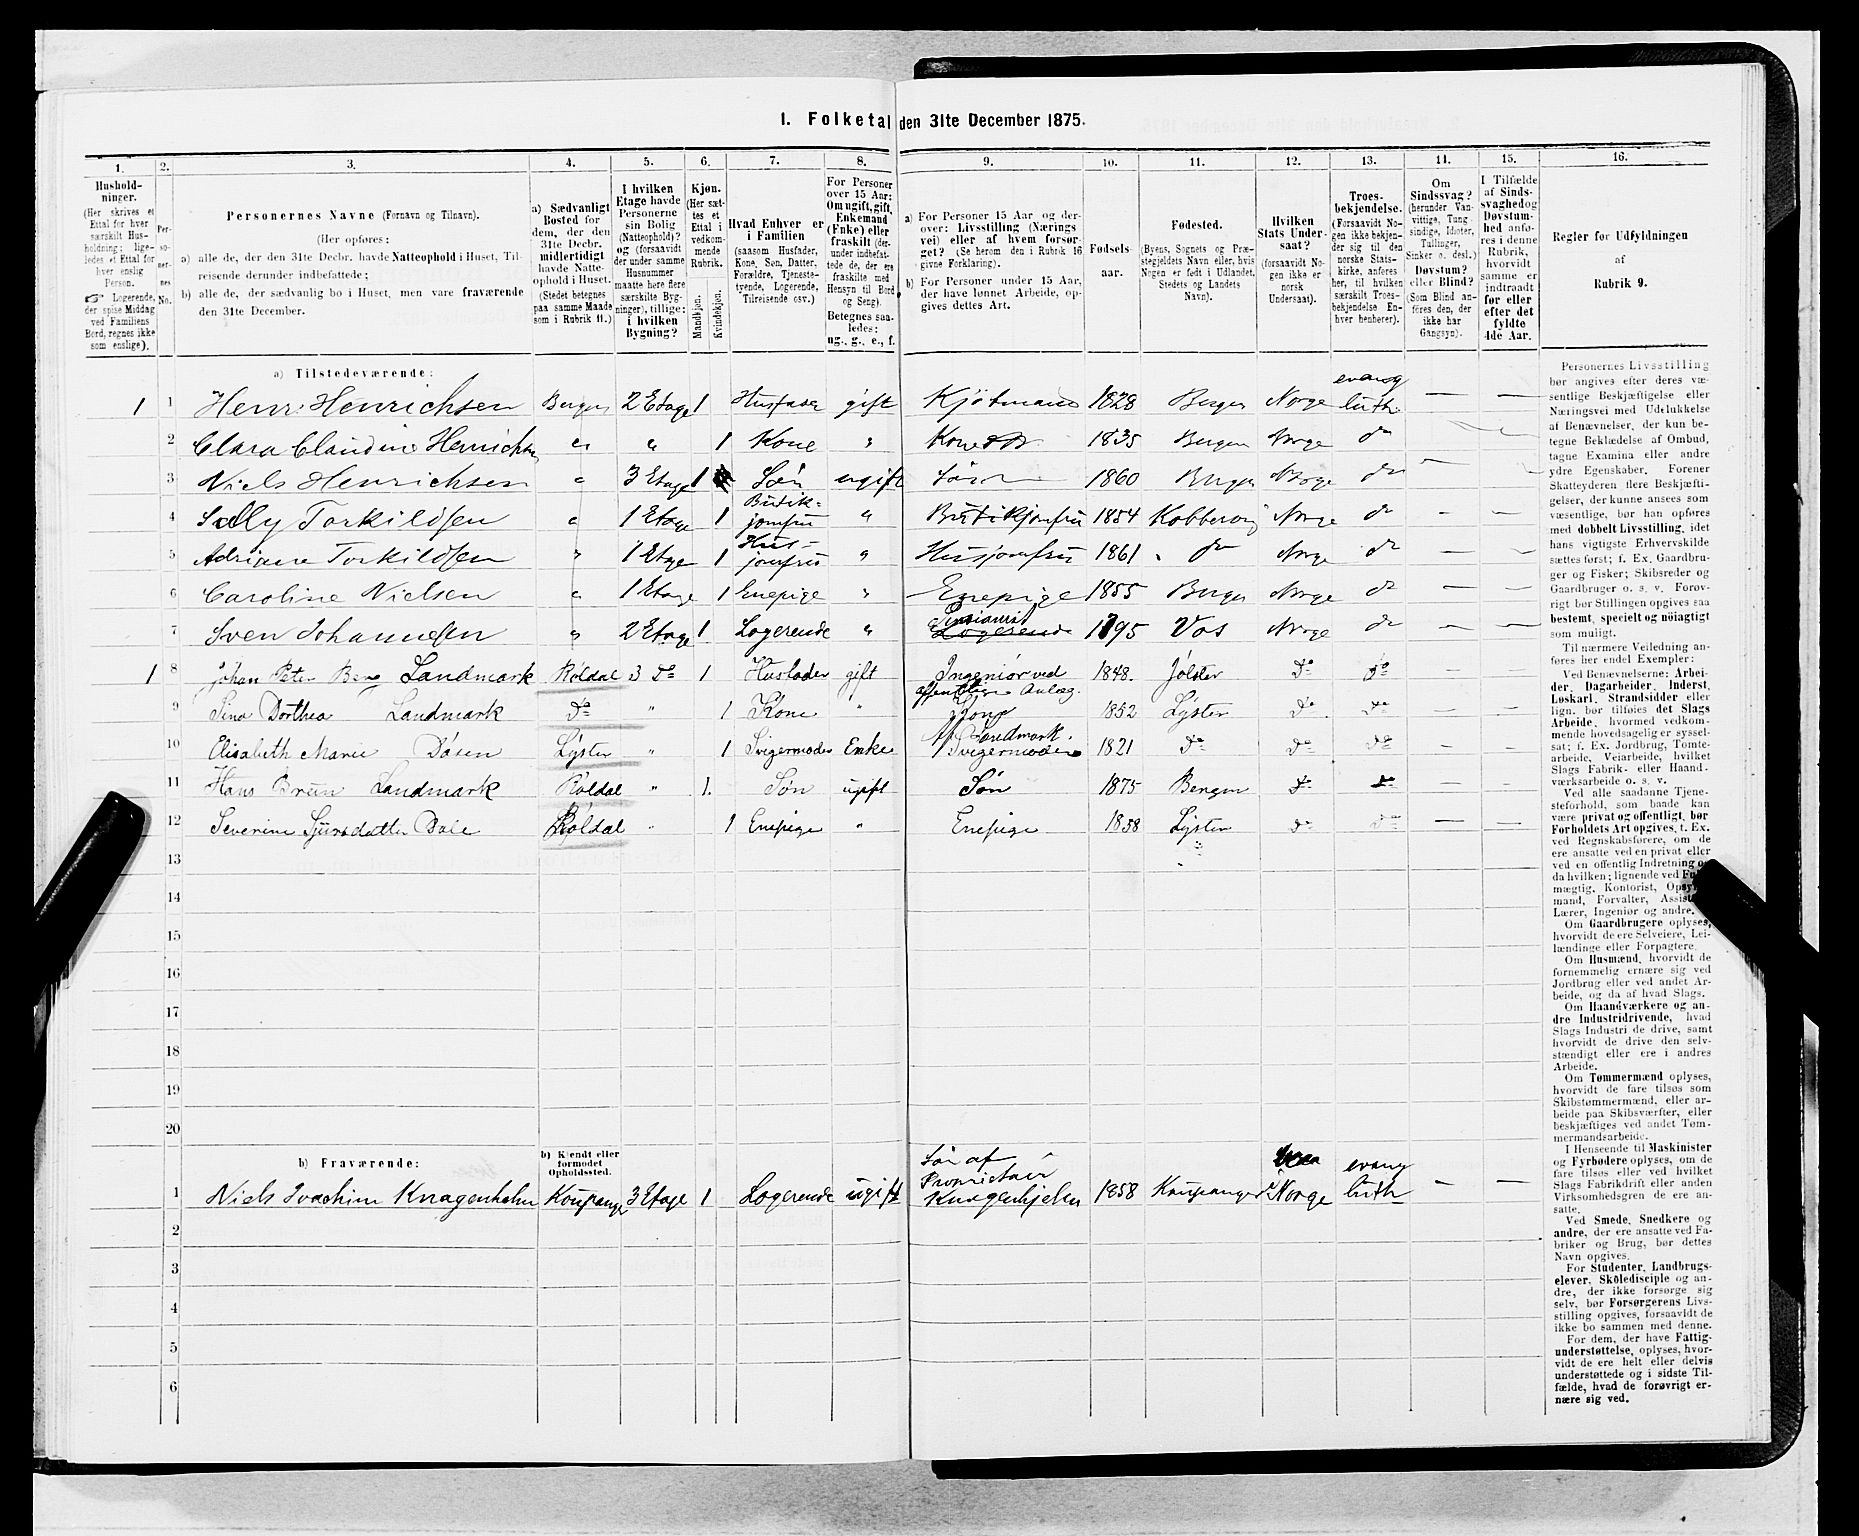 1. Folketal den 31te December 1875.
1. 2. 3. 4. 5. 6. 7. 8. 9. 10. 11. 12. 13. 14. 15. 16.
Hushold-
ninger.
(Her skrives et
Ettal for hver
særskilt Hus-
holdning; lige-
ledes et Ettal for
hver enslig
Person.
☞ Logerende,
der spise Middag
ved Familiens
Bord, regnes ikke
som enslige).
Per-
so-
ner-
nes
No.
Personernes Navne (Fornavn og Tilnavn).
(Her opføres:
a) alle de, der den 31te Decbr. havde Natteophold i Huset, Til-
reisende derunder indbefattede;
b) alle de, der sædvanlig bo i Huset, men vare fraværende
den 31te December.
a) Sædvanligt
Bosted for
dem, der den
31te Decbr.
midlertidigt
havde Natte-
ophold i Huset.
(Stedet betegnes
paa samme Maade
som i Rubrik 11.)
I hvilken
Etage havde
Personerne
sin Bolig
(Natteophold)?
og (forsaavidt
der under samme
Husnummer
maatte høre flere
særskilte Byg-
ninger), tillige:
i hvilken
Bygning?
Kjøn.
(Her sæt-
tes et
Ettal i
vedkom-
mende
Rubrik.
Mandkjøn.
Kvindekjøn.
Hvad Enhver er
i Familien
(saasom Husfader,
Kone, Søn, Datter,
Forældre, Tjeneste-
tyende, Logerende,
Tilreisende osv.)
For Personer
over 15 Aar:
Om ugift, gift,
Enkemand
(Enke) eller
fraskilt (der-
under indbefat-
tede de, der ere
fraskilte med
Hensyn til Bord
og Seng).
Betegnes saa-
ledes:
ug., g., e., f.
a) For Personer 15 Aar og der-
over: Livsstilling (Nærings
vei) eller af hvem forsør-
get? (Se herom den i Rubrik 16
givne Forklaring).
b) For Personer under 15 Aar,
der have lønnet Arbeide, op-
gives dettes Art.
Fødsels-
aar.
Fødested.
(Byens, Sognets og Præ-
stegjeldets Navn eller, hvis
Nogen er født i Udlandet,
Stedets og Landets
Navn).
Hvilken
Stats Under-
saat?
(forsaavidt No-
gen ikke er
norsk
Undersaat).
Troes-
bekjendelse.
(Forsaavidt No-
gen ikke bekjen-
der sig til den
norske Stats-
kirke, anføres
her, til hvilken
særskilt Troes-
bekjendelse En-
hver henhører).
Om
Sindssvag?
(herunder Van-
vittige, Tung
sindige, Idioter,
Tullinger,
Sinker o. desl.)
Døvstum?
eller Blind?
(Som Blind an-
føres den, der
ikke har
Gangsyn).
I Tilfælde
af Sinds-
svaghed og
Døvstum-
hed anfø-
res i denne
Rubrik,
hvorvidt
samme er
indtraadt
før eller
efter det
fyldte
4de Aar.
Regler for Udfyldningen
af
Rubrik 9.
a) Tilstedeværende:
1 1 Henr. Henrichsen Bergen 2 Etage 1 Husfader gift Kjøtmand 1828 Bergen Norge evang luth. — —
2 Clara Claudine Henrichsen " " 1 Kone " Kone 1835 Bergen Norge do
3 Niels Henrichsen " 3 Etage 1 Søn ugift Søn 1860 Bergen Norge do — —
4 Sally Torkildsen " 1 Etage 1 Butik-jomfru " Butikjomfru 1854 Kobbervig Norge do — —
5 Adriane Torkildsen " 1 Etage 1 Hus-jomfru " Husjomfru 1861 do Norge do — —
6 Caroline Nielsen " 1 Etage 1 Enepige " Enepige 1855 Bergen Norge do — —
7 Sven Johannesen " 2 Etage 1 Logerende " Logerende 1795 Vos Norge do — —
1 8 Johan Peter Berg Landmark Røldal 3 Do 1 Husfader gift Ingeniør ved offentlige Anlæg. 1848. Jølster Do Do — —
9 Sina Dorthea Landmark Do " 1 Kone " Kone 1852 Lyster Do Do — —
10 Elisabeth Marie Døsen Lyster " 1 Svigermoder Enke Landmark. Svigermoder 1821 Do Do Do — —
11 Hans Bruun Landmark Røldal " 1. Søn ugift Søn 1875 Bergen Do Do — —
12 Severine Sjursdatter Dale Røldal " 1 Enepige " Enepige 1858 Lyster Do Do — —
13
14
15
16
17
18
19
20
b) Fraværende:
b) Kjendt eller
formodet
Opholdssted.
1 Niels Joachim Knagenhelm Koupanger 3 Etage 1 Logerende ugift Søn af Proprietair Knagenhjelm 1858 Koupanger Norge evang luth — —
2
3
4
5
6
Personernes Livsstilling
bør angives efter deres væ-
sentlige Beskjæftigelse eller
Næringsvei med Udelukkelse
af Benævnelser, der kun be-
tegne Beklædelse af Ombud,
tagne Examina eller andre
ydre Egenskaber. Forener
Skatteyderen flere Beskjæfti-
gelser, der kunne ansees som
væsentlige, bør han opføres
med dobbelt Livsstilling, idet
hans vigtigste Erhvervskilde
sættes først; f. Ex. Gaardbru-
ger og Fisker; Skibsreder og
Gaardbruger o. s. v. Forøv-
rigt bør Stillingen opgives saa
bestemt, specielt og nøiagtigt
som muligt.
Til nærmere Veiledning an-
føres her endel Exempler:
Ved Benævnelserne: Arbei-
der, Dagarbeider, Inderst,
Løskarl, Strandsidder eller
lign. bør tilføies det Slags
Arbeide, hvormed vedkom-
mende hovedsagelig er syssel-
sat; f. Ex. Jordbrug, Tomte-
arbeide, Veiarbeide, hvilket
Slags Fabrik- eller Haand-
værksarbeide o. s. v.
Ved alle saadanne Tjene-
steforhold, som baade kan
være privat og offentligt, bør
Forholdets Art opgives, t. Ex.
ved Regnskabsførere, om de
ere ansatte ved en privat eller
ved en offentlig Indretning og
da hvilken; lignende ved Fuld-
mægtig, Kontorist, Opsyns-
mand, Forvalter, Assistent,
Lærer, Ingeniør og andre.
Om Gaardbrugere oplyses,
hvorvidt de ere Selveiere, Lei-
lændinge eller Forpagtere.
Om Husmænd, hvorvidt de
fornemmelig ernære sig ved
Jordbrug eller ved andet Ar-
beide, og da af hvad Slags.
Om Haandværkere og an-
dre Industridrivende, hvad
Slags Industri de drive, samt
hvorvidt de drive den selv-
stændigt eller ere i andres
Arbeide.
Om Tømmermænd oplyses,
hvorvidt de fare tilsøs som
Skibstømmermænd, eller ar-
beide paa Skibsværfter, eller
beskjæftiges ved andet Tøm-
mermandsarbeide.
I Henseende til Maskinister
og Fyrbødere oplyses, om de
fare tilsøs eller ved hvilket
Slags Fabrikdrift eller anden
Virksomhedsgren de ere an-
satte.
Ved Smede, Snedkere og
andre, der ere ansatte ved Fa-
briker og Brug, bør dettes
Navn opgives.
For Studenter, Landbrugs-
elever, Skoledisciple og an-
dre, der ikke forsørge sig
selv, bør Forsørgerens Livs-
stilling opgives, forsaavidt de
ikke bo sammen med denne.
For dem, der have Fattig-
understøttelse, oplyses, hvor-
vidt de ere helt eller delvis
understøttede og i sidste Til-
fælde, hvad de forøvrigt er-
nære sig ved.